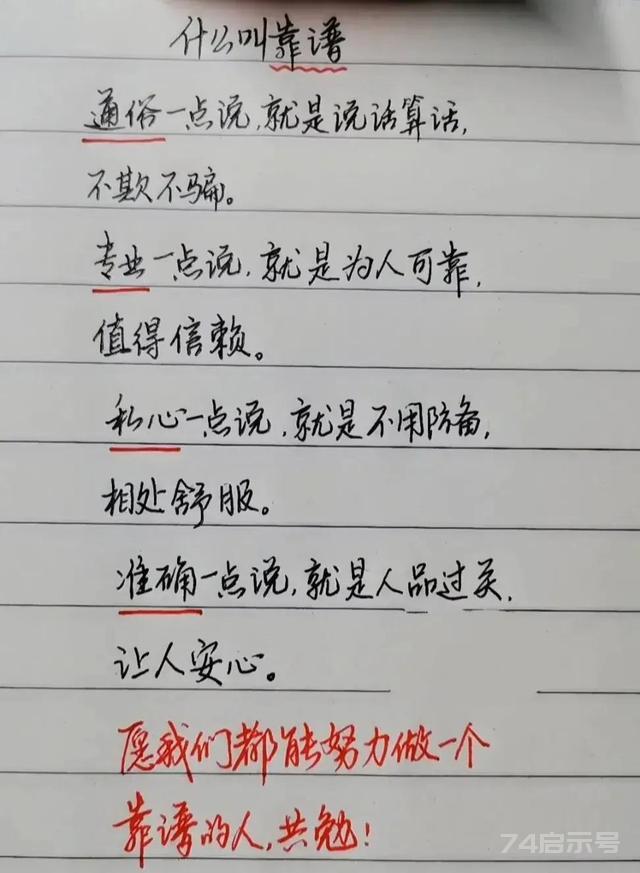 什么叫靠谱
通俗一点说,就是说话算话,
不欺不骗。
专业一点说,就是为人可靠,
值得信赖。
私心一点说,就是不用防备,
相处舒服。
准确一点说,就是人品过关,
让人安心。
愿我们都能努力做一个
靠谱的人,共勉!
74启示号